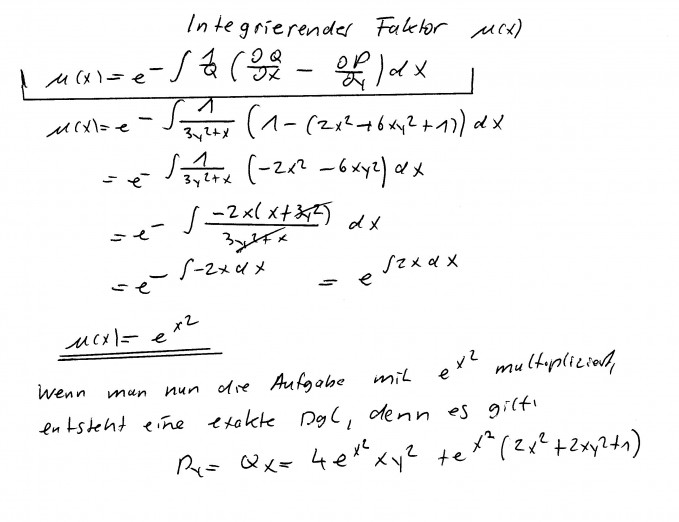 Integrierender Faktor μ(x)
μ(x) = e^-∫ 1/Q (∂Q/∂x - ∂P/∂y) dx
μ(x) = e^-∫ 1/(3y²+x) (1-(2x²+6xy²+1)) dx
= e^-∫ 1/(3y²+x) (-2x²-6xy²) dx
= e^-∫ -2x(x+3y²)/(3y²+x) dx
= e^-∫-2x dx = e^∫2x dx
μ(x) = e^x²
Wenn man nun die Aufgabe mit e^x² multipliziert,
entsteht eine exakte Dgl, denn es gilt:
Py = Qx = 4e^x² xy² + e^x² (2x²+2xy²+1)